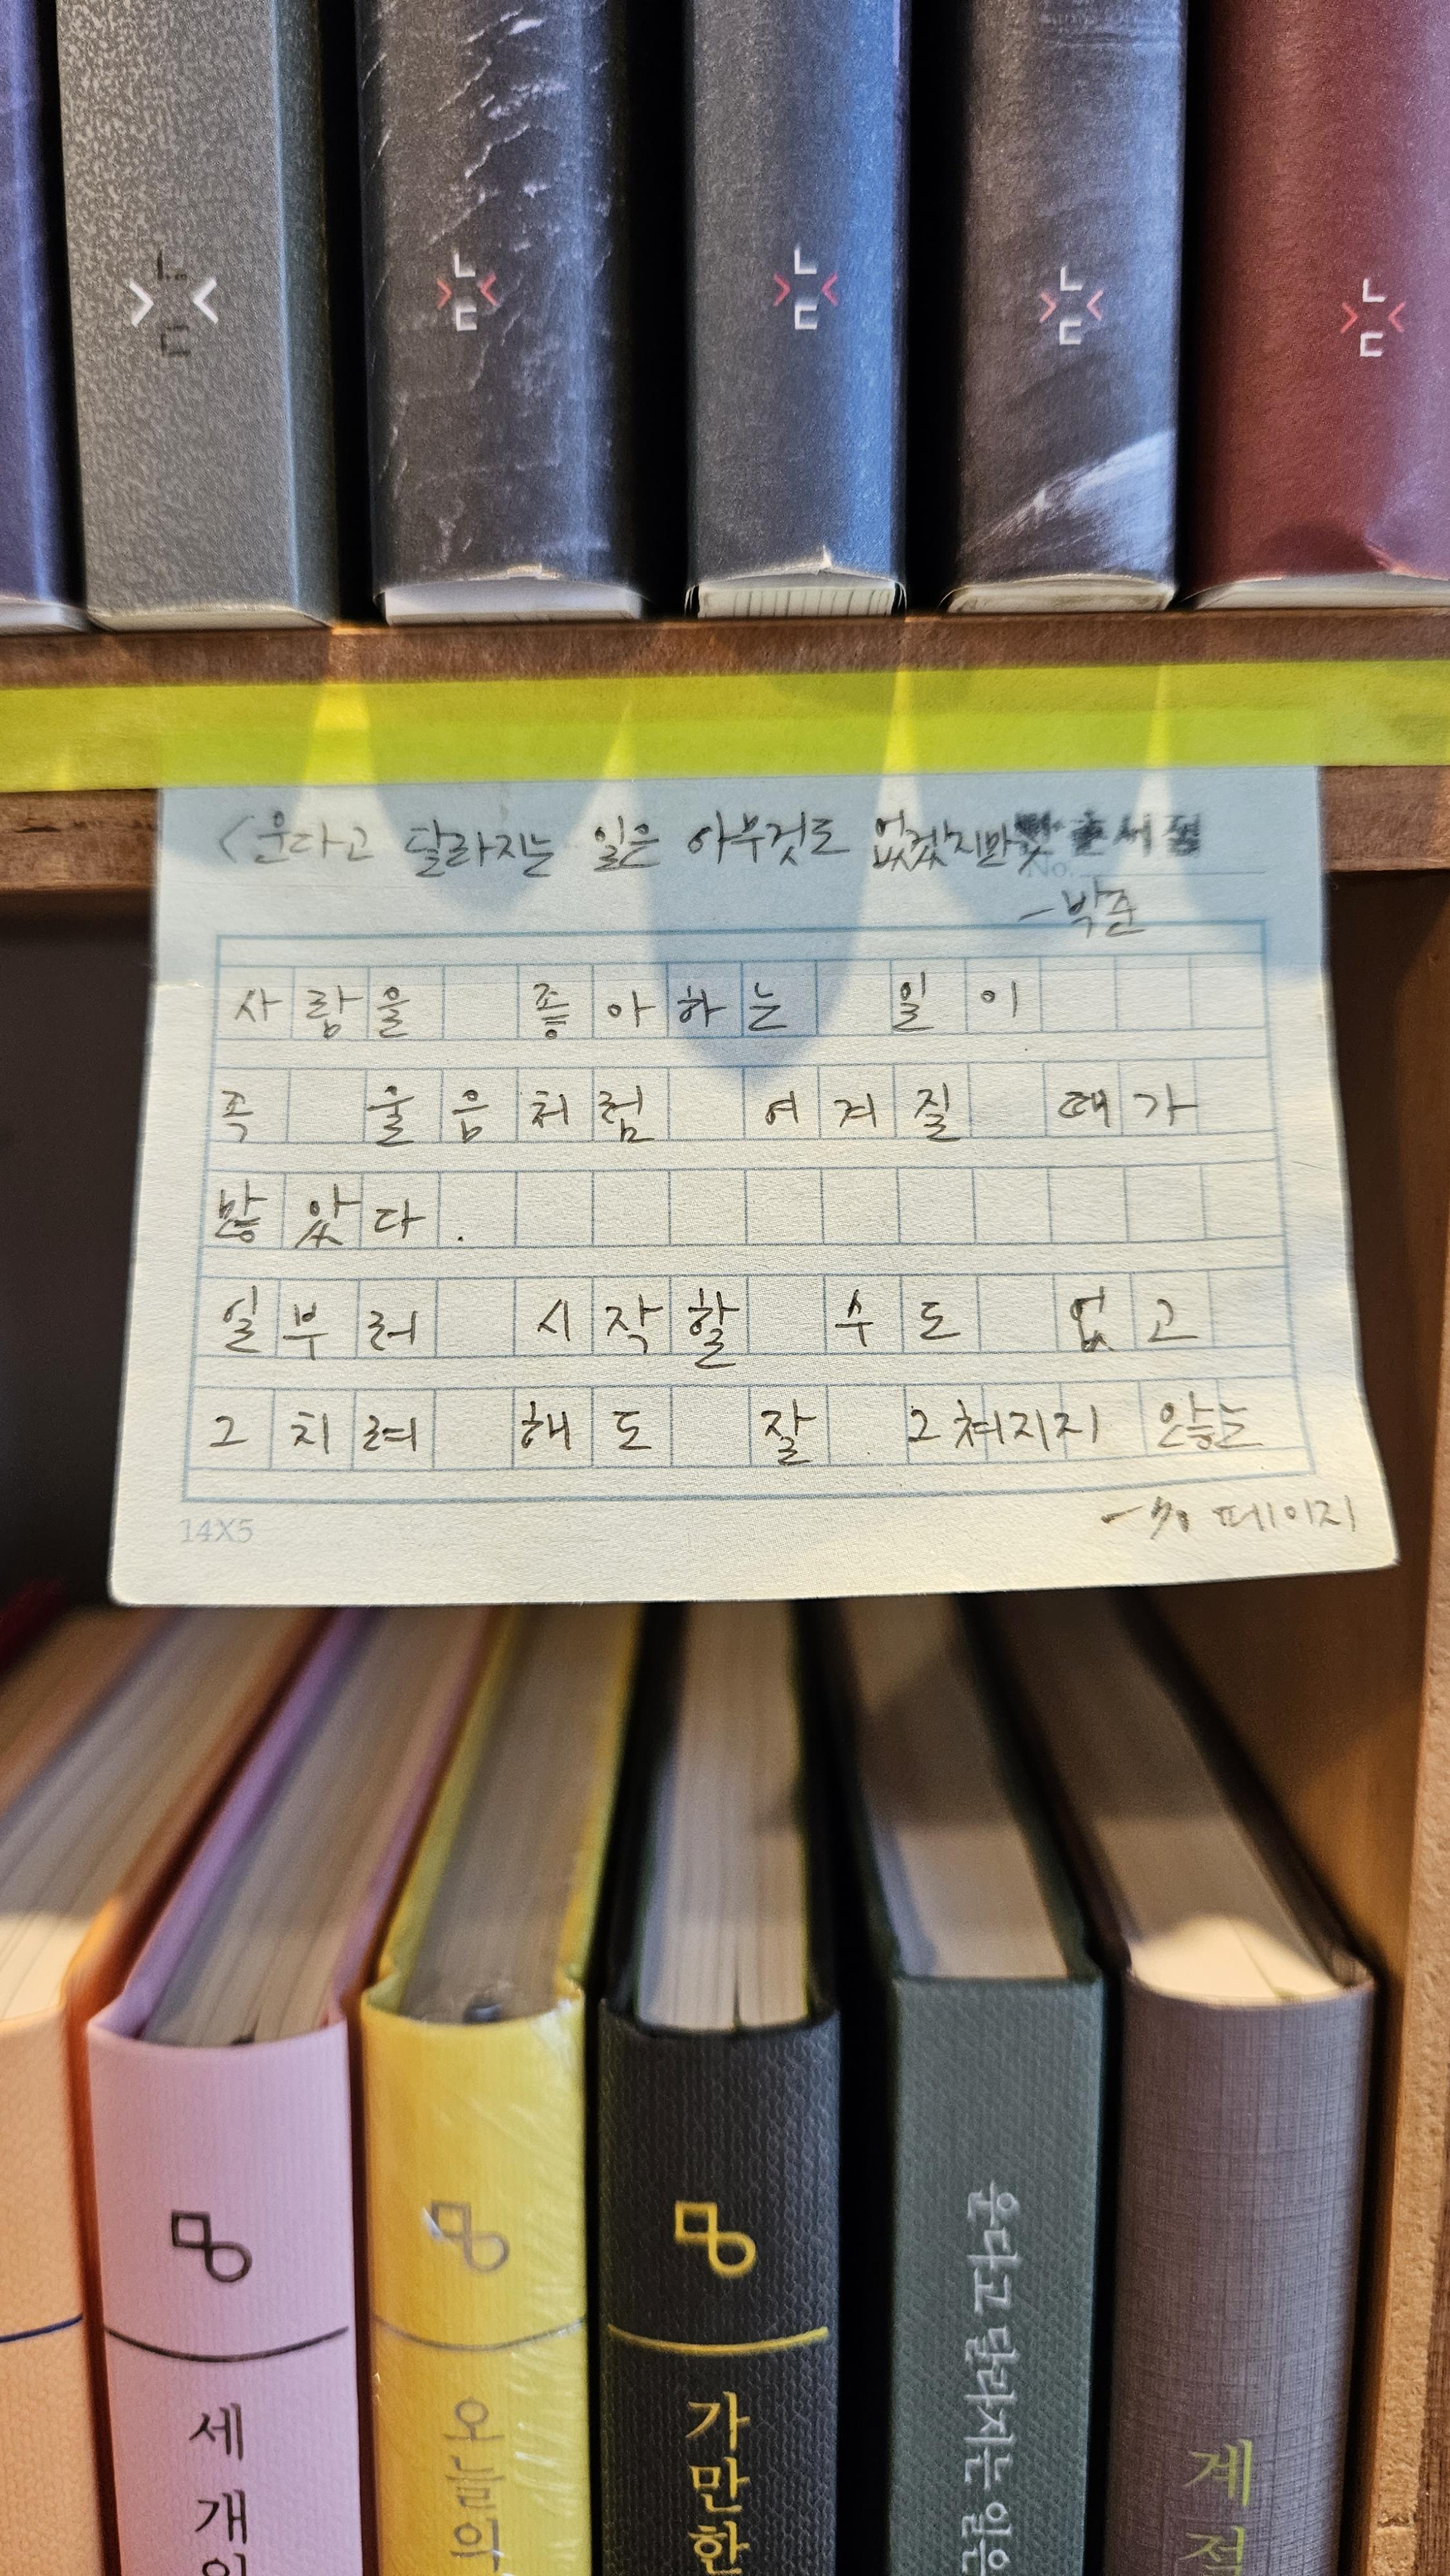 <운다고 달라지는 일은 아무것도 없겠지만
No.
- 박준
사람을 좋아하는 일이
꼭 울음처럼 여겨질 때가
많았다.
일부러 시작할 수도 없고
그치려 해도 잘 그쳐지지 않는
페이지
14X5
세 개의
오늘의
가만한
운다고 달라지는 일은
계절